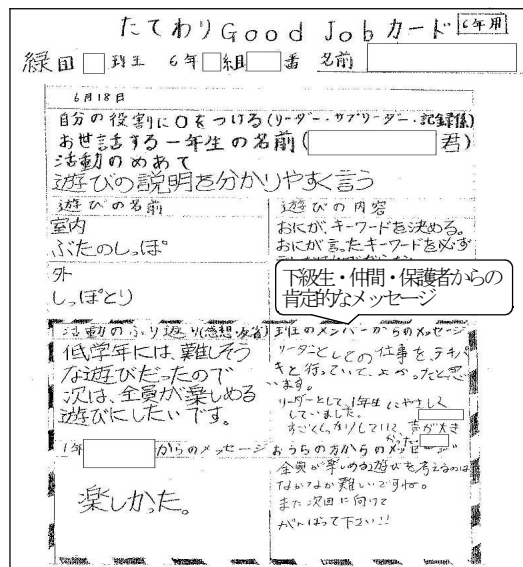 たてわりGood Jobカード 6年用
緑団 班 6年 組 番 名前
6月18日
自分の役割に○をつける(リーダー・サブリーダー・記録係)
お世話する一年生の名前( 君)
活動のめあて
遊びの説明を分かりやすく言う
遊びの名前
室内
ぶたのしっぽ
外
しっぽとり
遊びの内容
おにが、キーワードを決める。
おにが言ったキーワードを必ず
下級生・仲間・保護者からの
肯定的なメッセージ
活動のふり返り(感想・反省)
低学年には、難しそう
な遊びだったので
次は、全員が楽しめる
遊びにしたいです。
班のメンバーからのメッセージ
リーダーとしての仕事を、テキパ
キと行っていて、よかったと思
います。
リーダーとして、1年生にやさしく
していました。
すごくしっかりしていて、声が大き
かった
1年 からのメッセージ
楽しかった。
おうちの方からのメッセージ
全員が楽しめる遊びを考えるのは
なかなか難しいですね。
また次回に向けて
がんばって下さい!!